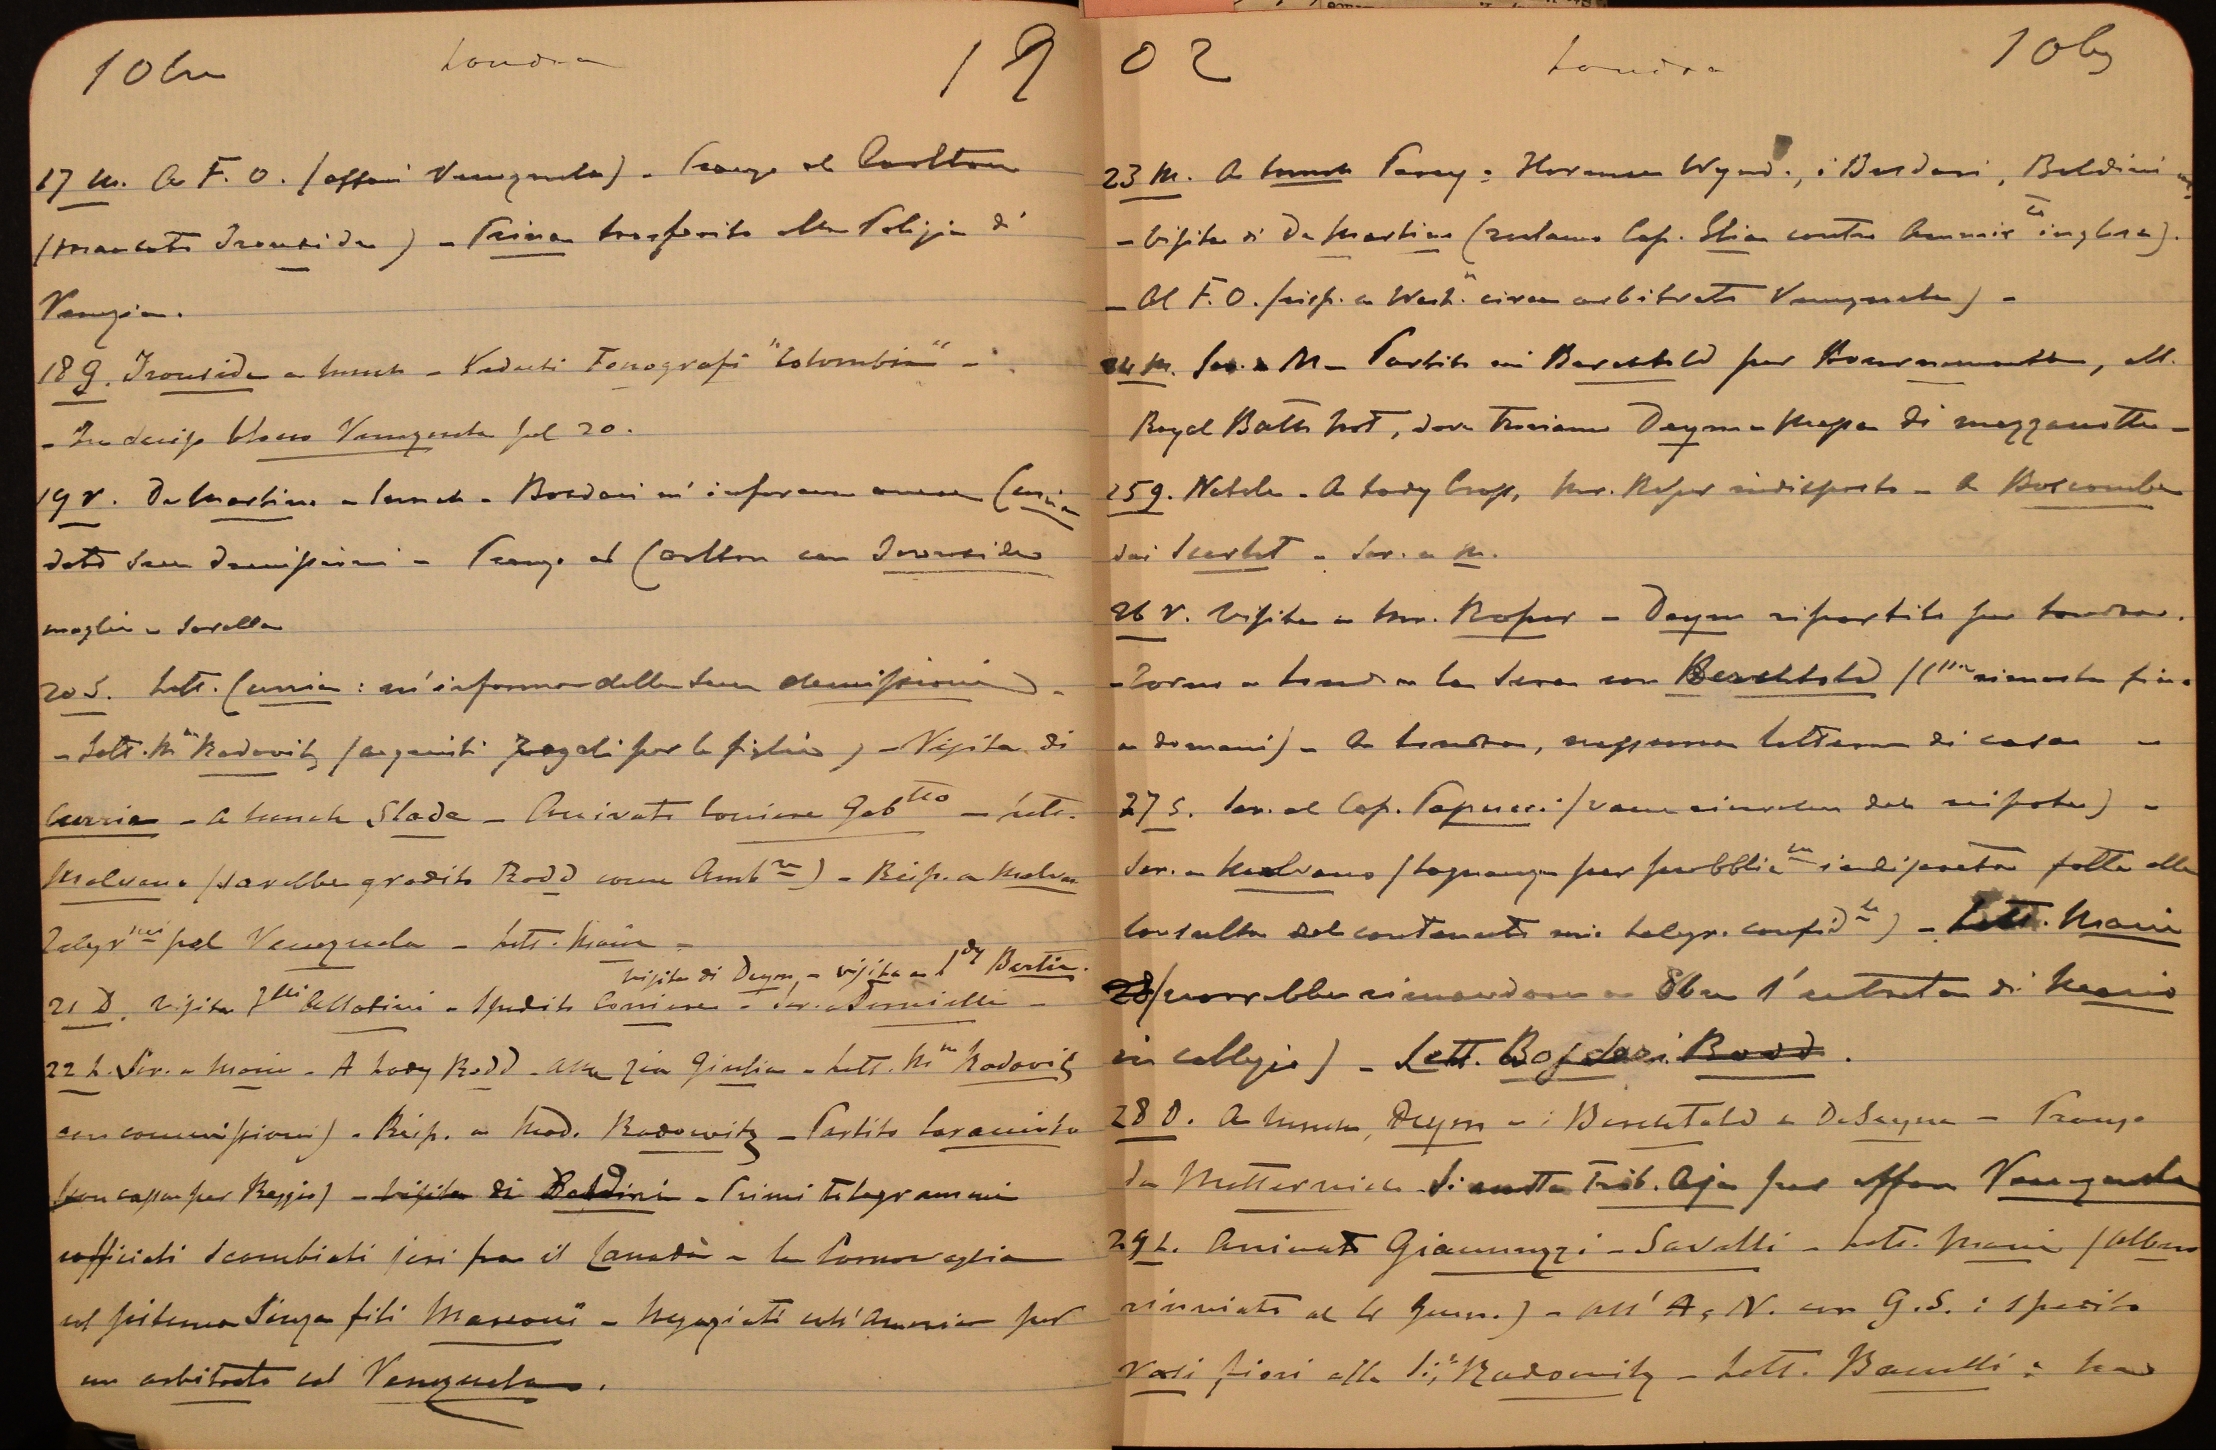 10bre Londra 19
17 M. A F. O. (affari Venezuela) - Pranzo al Carlton
(mancato Ironside) - Prina trasferito alla Polizia di
Venezia.
18 G. Ironside a lunch - Veduti Fonografi "Colombia" -
- Si decise blocco Venezuela pel 20.
19 V. De Martino a lunch - Bordari m'informa
dato sue demissioni - Pranzo al Carlton con Ironside
moglie e sorella
20 S. Lett. Currie: m'informa delle sue demissioni) -
- Lett. Mme Radowitz (acquisti regali per le figlie) - Visita di
Currie - A lunch Slade - Arrivato Corriere Gabtto - Lett.
Malvano (sarebbe gradito Rodd come Ambre) - Risp. a Malvano
Telegrmi pel Venezuela - Lett. Maria -
visita di Deym, - visita a Ldy Bertie.
21 D. Visita - Spedito Corriere - Scr. a Tornielli -
22 L. Scr. a Maria - A Lady Rodd - alla zia Giulia - Lett. Mme Radowitz
con commissioni) - Risp. a Mad. Radowitz - Partito
(con casse per Reggio) - visita di Baldini - Primi telegrammi
ufficiali scambiati jeri fra il Canadà e la Cornovaglia
col sistema senza fili Marconi - Negoziati coll'America per
un arbitrato col Venezuela.
02 Londra 10bre
23 M. A lunch Percy Wynd., i Bordari, Baldini
- Visita di De Martino (reclamo Cap. Elia contro Ammirto inglese).
- Al F. O. (risp. a Washn circa arbitrato Venezuela) -
24 M. Scr. a M - Partito coi Berchtold per Bournemouth, all.
Royal Bath Hot, dove troviamo Deym - Messa di mezzanotte -
25 G. Natale - A Lady Mr. Roper indisposto - A Boscombe
dai Scarlet - Scr. a M.
26 V. Visita a Mr. Roper - Deym ripartito per Londra.
- Torno a Londra la sera con Berchtold rimasta fino
a domani) - A Londra, nessuna lettera di casa -
27 S. Scr. al Cap. Papucci (vane ricerche del nipote) -
Scr. a Malvano (lagnanza per pubblica indiscreta fatta alla
Consulta del contenuto mio telegr. confidle) - Lett. Maria
(vorrebbe rimandare a 8bre l'entrata di Mario
in collegio) - Lett. Rodd.
28 D. A lunch, Deym e i Berchtold e - Pranzo
da Metternich Trib. Aja per affare Venezuela
29 L. Arrivato Giannuzzi-Savelli - Lett. Maria (Albero
rinviato al 4 Genn.) - all' A. N. con G. S. : spedito
vasi fiori alla Sig. Radowitz - Lett.